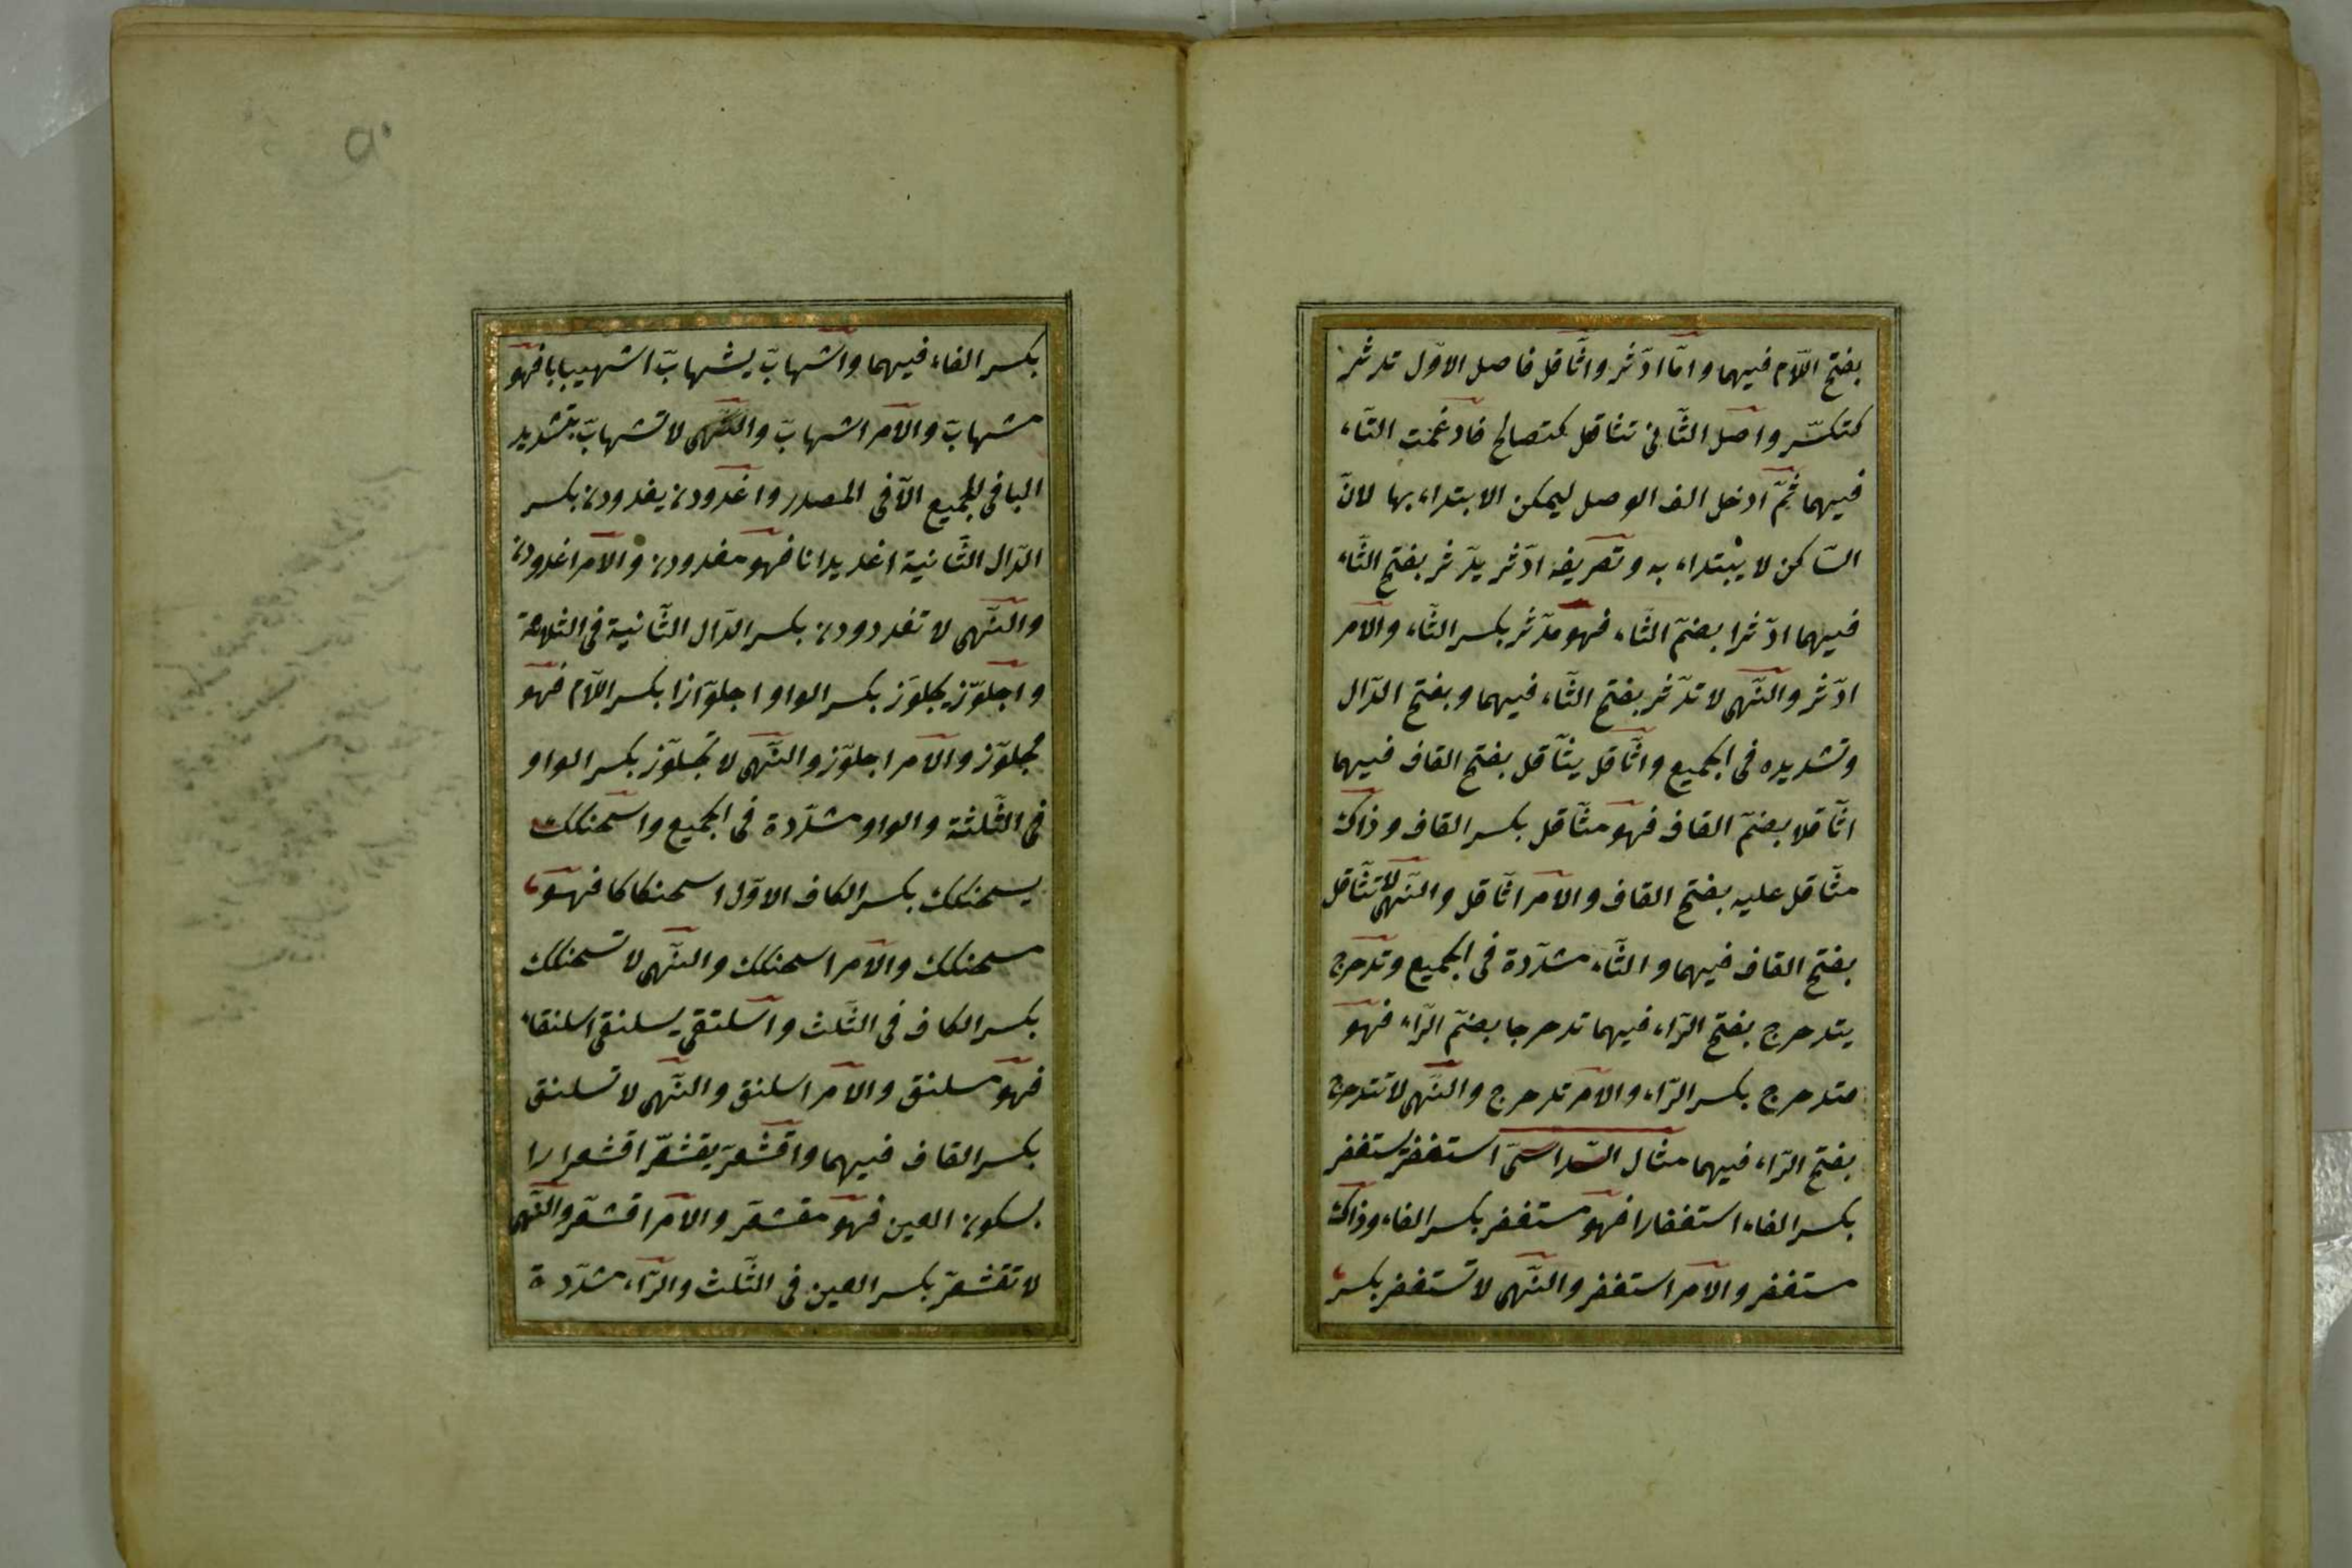 بفتح اللّام فيهما وامّا ادّثر واثّاقل فاصل الاوّل تدثر
كتكسّر واصل الثّانى تثاقل كتصالح فادغمت التّاء
فيهما ثمّ ادخل الف الوصل ليمكن الابتداء بها لانّ
السّاكن لا يبتداء به وتصريفه ادّثر يدّثر بفتح الثّاء
فيهما ادّثرا بضمّ الثّاء فهو مدّثر بكسر الثّاء والامر
ادّثر والنّهى لا تدّثر بفتح الثّاء فيهما وبفتح الدّال
وتشديده فى الجميع واثّاقل يثّاقل بفتح القاف فيهما
اثّاقلا بضمّ القاف فهو مثّاقل بكسر القاف وذاك
مثّاقل عليه بفتح القاف والامر اثّاقل والنّهى لا تثّاقل
بفتح القاف فيهما والثّاء مشدّدة فى الجميع وتدحرج
يتدحرج بفتح الرّاء فيهما تدحرجا بضمّ الرّاء فهو
متدحرج بكسر الرّاء والامر تدحرج والنّهى لا تتدحرج
بفتح الرّاء فيهما مثال السّداسىّ استغفر يستغفر
بكسر الفاء استغفارا فهو مستغفر بكسر الفاء وذاك
مستغفر والامر استغفر والنّهى لا تستغفر بكسر
بكسر الفاء فيهما واشهابّ يشهابّ اشهيبابا فهو
مشهابّ والامر اشهابّ والنّهى لا تشهابّ بتشديد
البا فى الجميع الّا فى المصدر واغدودن يغدودن بكسر
الدّال الثّانية اغديدانا فهو مغدودن والامر اغدودن
والنّهى لا تغددودن بكسر الدّال الثّانية فى الثلاثة
واجلوّز يجلوّز بكسر الواو اجلوّازا بكسر اللّام فهو
مجلوّز والامر اجلوّز والنّهى لا تجلوّز بكسر الواو
فى الثّلثة والواو مشدّدة فى الجميع واسحنكك
يسحنكك بكسر الكاف الاوّل اسحنكاكا فهو
مسحنكك والامر اسحنكك والنّهى لا تسحنكك
بكسر الكاف فى الثّلث واسلنقى يسلنقى اسلنقاء
فهو مسلنق والامر اسلنق والنّهى لا تسلنق
بكسر القاف فيهما واقشعرّ يقشعرّ اقشعرارا
بسكون العين فهو مقشعرّ والامر اقشعرّ والنّهى
لا تقشعرّ بكسر العين فى الثّلث والرّاء مشدّدة